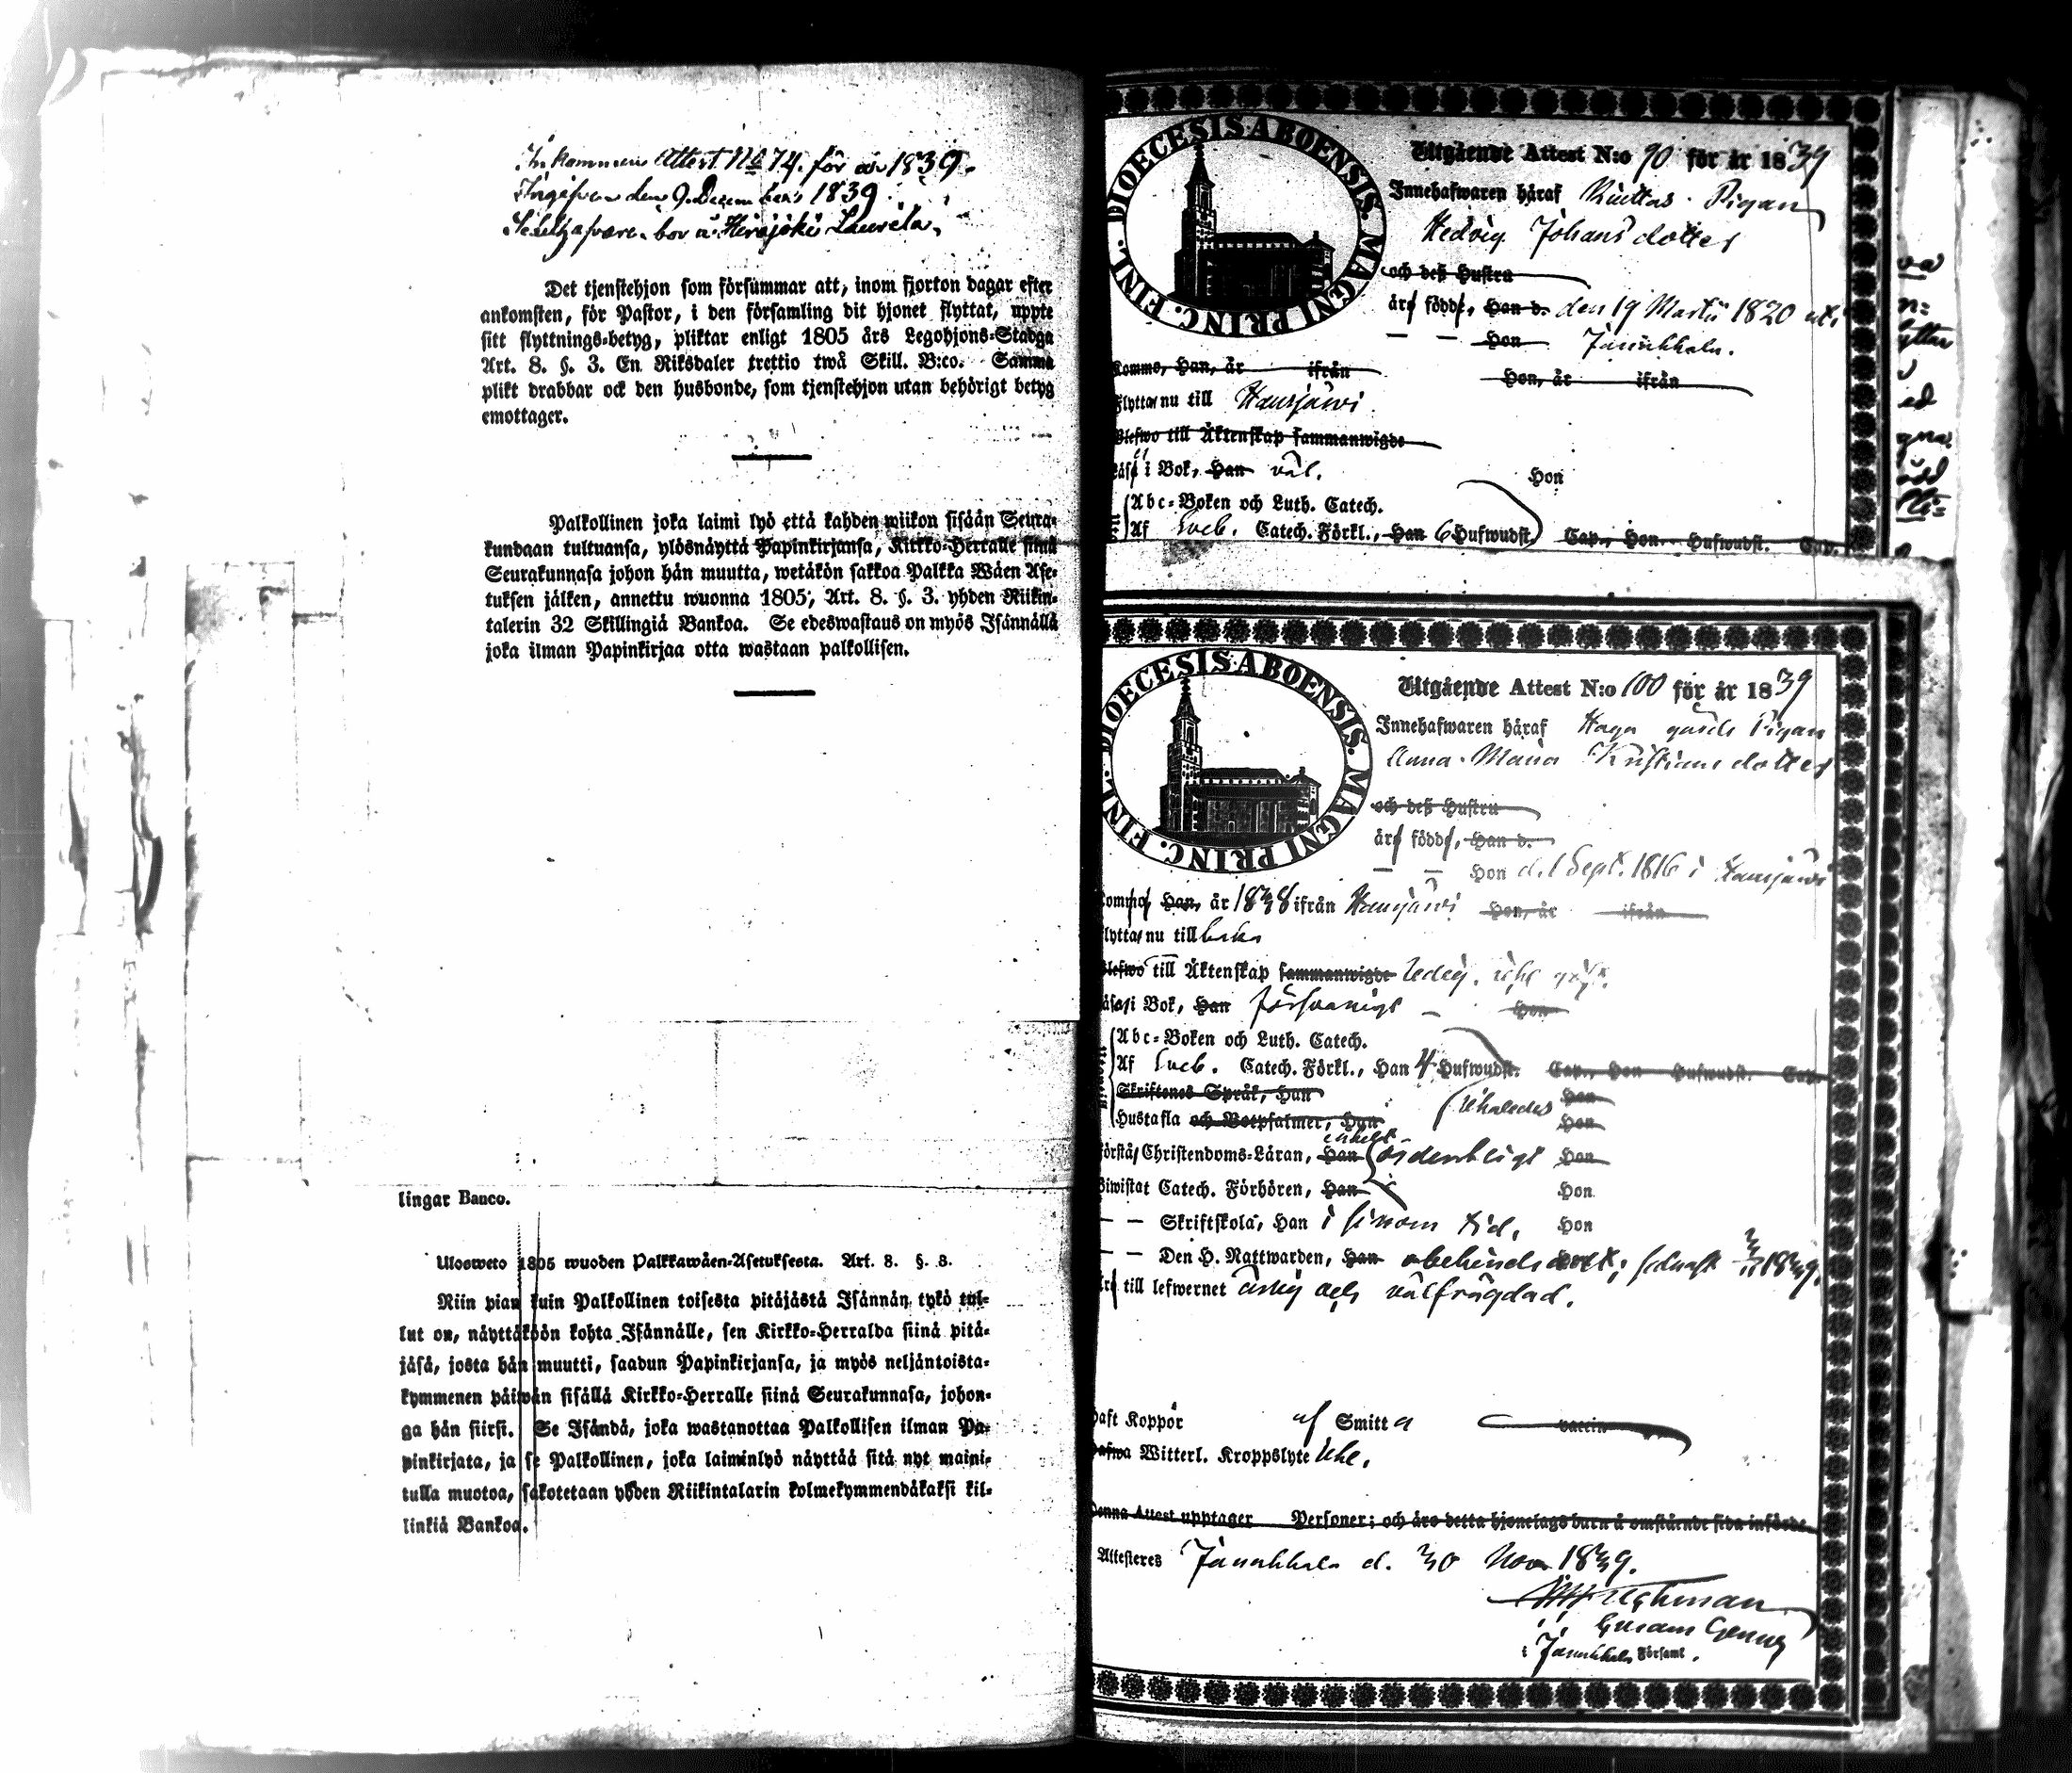 Inkommen Attest No 74. för år 1839.
Ingifven den 9. December 1839
bor i Herajoki Laurila.
Det tjenstehjon som försummar att, inom fjorton dagar efter
ankomsten, för Pastor, i den församling dit hjonet flyttat, uppte
sitt flyttnings-betyg, pliktar enligt 1805 års Legohjons-Stadga
Art. 8. §. 3. En Riksdaler trettio twå Skill. B:co. Samma
plikt drabbar ock den husbonde, som tjenstehjon utan behörigt betyg
emottager.
Palkollinen joka laimi lyö että kahden wiikon sisään Seura-
kundaan tultuansa, ylösnäyttä Papinkirjansa, Kirkko-Herralle siinä
Seurakunnasa johon hän muutta, wetäkön sakkoa Palkka Wäen Ase-
tuksen jälken, annettu wuonna 1805, Art. 8. §. 3. yhden Riikin-
talerin 32 Skillingiä Bankoa. Se edeswastaus on myös Isännällä
joka ilman Papinkirjaa otta wastaan palkollisen.
lingar Banco.
Ulosweto 1805 wuoden Palkkawäen-Asetuksesta. Art. 8. §. 3.
Niin pian kuin Palkollinen toisesta pitäjästä Isännän tykö tul-
lut on, näyttäköön kohta Isännälle, sen Kirkko-Herralda siinä pitä-
jäsä, josta hän muutti, saadun Papinkirjansa, ja myös neljäntoista-
kymmenen päiwän sisällä Kirkko-Herralle siinä Seurakunnasa, johon-
ga hän siirsi. Se Isändä, joka wastanottaa Palkollisen ilman Pa-
pinkirjata, ja se Palkollinen, joka laiminlyö näyttää sitä nyt maini-
tulla muotoa, sakotetaan yhden Riikintalarin kolmekymmendäkaksi kil-
linkiä Bankoa.
DIOECESIS ABOENSIS. MAGNI PRINC. FINL.
Utgående Attest N:o 90 för år 1839
Innehafwaren häraf Pigan
Hedvig Johansdotter
och deß Hustru
är född, Han d. den 19 Martii 1820 uti
— — Hon Janakkala.
Kommo, Han, år ifrån Hon, år ifrån
Flytta nu till Hausjärvi
Blefwo till Äktenskap sammanwigde
i Bok, Han väl. Hon
Abc-Boken och Luth. Catech.
Af Sveb. Catech. Förkl., Han 6 Hufwudst. Cap., Hon Hufwudst. Cap.
DIOECESIS ABOENSIS. MAGNI PRINC. FINL.
Utgående Attest N:o 100 för år 1839
Innehafwaren häraf Haga gårds Pigan
Anna Maria Kristiansdotter
och deß Hustru
är född, Han d.
— — Hon d. 1 Sept. 1816 i Hausjärvi
Han, år 1838 ifrån Hausjärvi Hon, år ifrån
flytta nu till
Blefwo till Äktenskap sammanwigde ledig,
i Bok, Han försvarligt Hon
Abc-Boken och Luth. Catech.
Af Sveb. Catech. Förkl., Han 4 Hufwudst. Cap., Hon Hufwudst. Cap.
Skriftenes Språk, Han Hon
Hustafla och Botpsalmer, Han Hon
Förstå Christendoms-Läran, Han enkelt Hon
Biwistat Catech. Förhören, Han ordentligt Hon
— — Skriftskola, Han i sinom tid, Hon
— — Den H. Nattwarden, Han obehindradt; sednast 1839.
till lefwernet ärlig och välfrägdad.
Haft Koppor af Smitta vaccin
Hafwa Witterl. Kroppslyte Icke.
Denna Attest upptager Personer; och äro detta hjonelags barn å omstående sida införde.
Attesteras Janakkala d. 30 Nov 1839.
i Janakkala Församl.